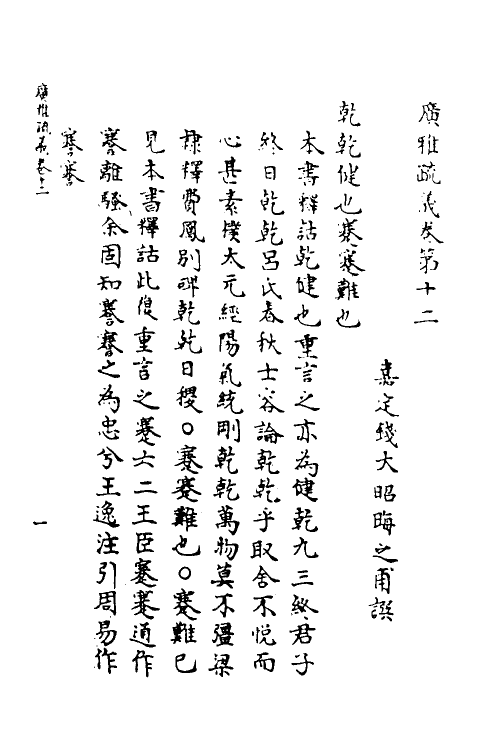 廣雅疏義卷第十二
嘉定錢大昭晦之甫譔
乾乾健也蹇蹇難也
本書釋詁乾健也重言之亦為健乾九三終君子
終日乾乾呂氏春秋士容論乾乾乎取舍不悦而
心甚素樸太元經陽氣統剛乾乾萬物莫不彊梁
隸釋費鳳別碑乾乾日稷○蹇蹇難也○蹇難已
見本書釋詁此復重言之蹇六二王臣蹇蹇通作
謇離騷余固知謇謇之為忠兮王逸注引周易作
謇謇
廣雅疏義卷十二
一